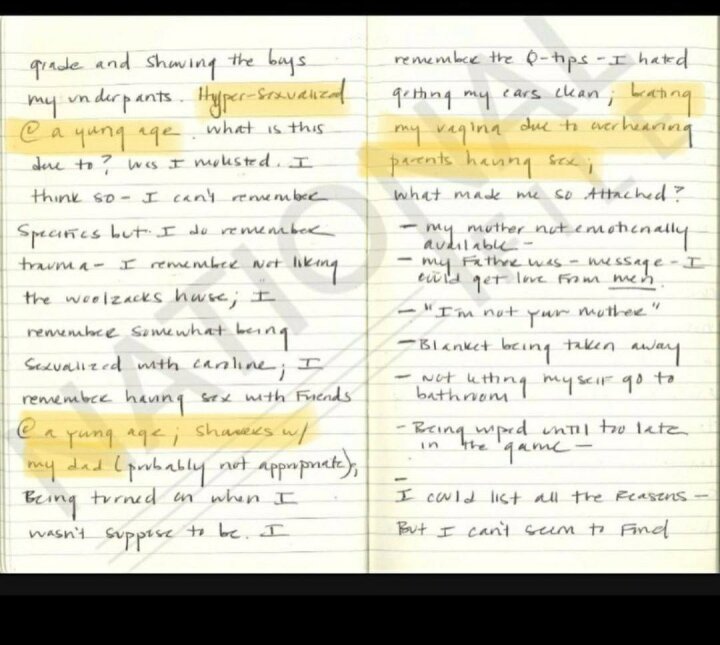 grade and showing the boys
my underpants. Hyper-sexualized
@ a yung age. what is this
due to? Was I molested. I
think so - I can't remember
specifics but I do remember
trauma - I remember not liking
the woolzacks house; I
remember somewhat being
sexualized with caroline; I
remember having sex with friends
@ a yung age; showers w/
my dad (probably not appropriate);
Being turned on when I
wasn't suppose to be. I
remember the Q-tips - I hated
getting my ears clean;
my vagina due to overhearing
parents having sex;
what made me so Attached?
- my mother not emotionally
available -
- my Father was - message - I
could get love from men.
- "I'm not your mother"
- Blanket being taken away
- Not letting myself go to
bathroom
- Being wiped until too late
in the game -
-
I could list all the Reasons -
But I can't seem to Find
NATIONAL FILE